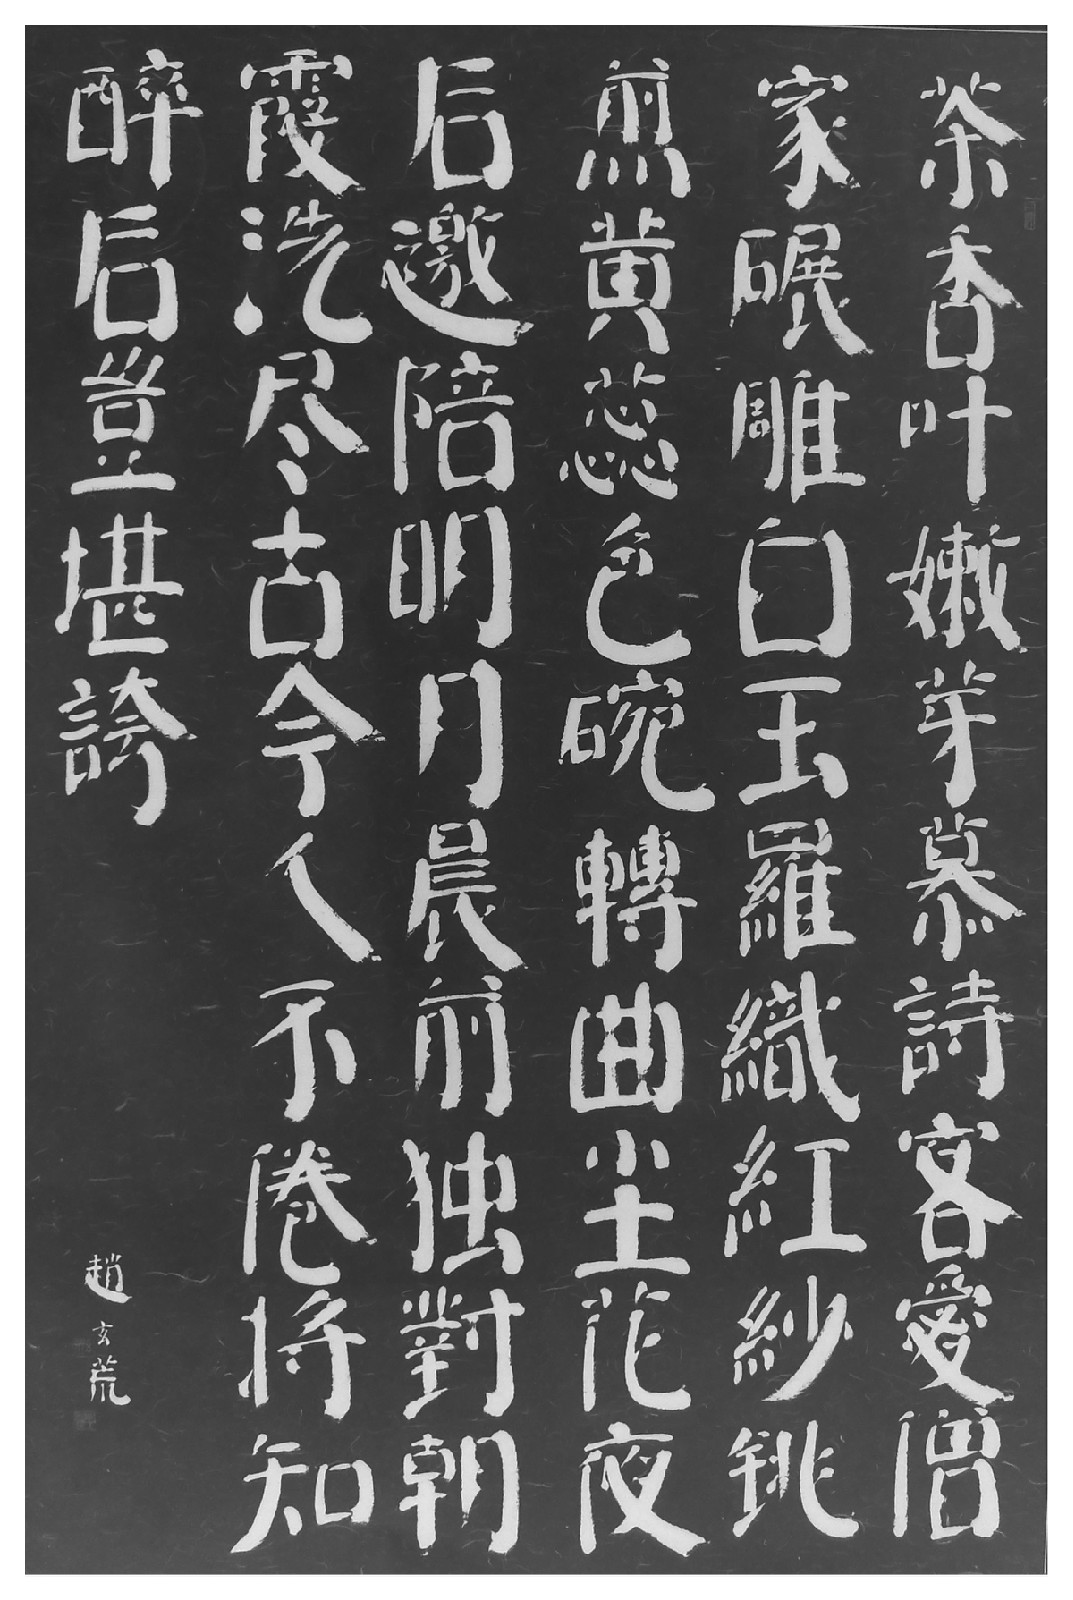 茶香叶嫩芽慕詩客愛僧
家碾雕白玉羅織紅紗銚
煎黄蕊色碗轉曲尘花夜
后邀陪明月晨前独對朝
霞洗尽古今人不倦将知
醉后豈堪誇
趙玄荒